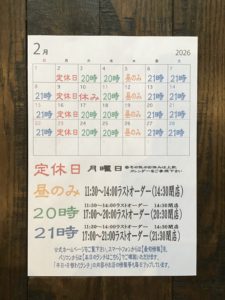 2月 2026
日 月 火 水 木 金 土
1 2 3 4 5 6 7
21時 定休日 20時 20時 昼のみ 21時 21時
8 9 10 11 12 13 14
21時 定休日 休み 20時 昼のみ 21時 21時
15 16 17 18 19 20 21
定休日 20時 20時 昼のみ 21時 21時
22 23 24 25 26 27 28
定休日 20時 20時 昼のみ 21時 21時
定休日 月曜日
カレンダーをご参照下さい
昼のみ 11:30~14:00ラストオーダー(14:30閉店)
20時 11:30~14:00ラストオーダー 14:30閉店
17:00~20:00ラストオーダー(20:30閉店)
21時 11:30~14:00ラストオーダー 14:30閉店
17:00~21:00ラストオーダー(21:30閉店)
公式ホームページをご覧下さい。スマートフォンからは
パソコンからは